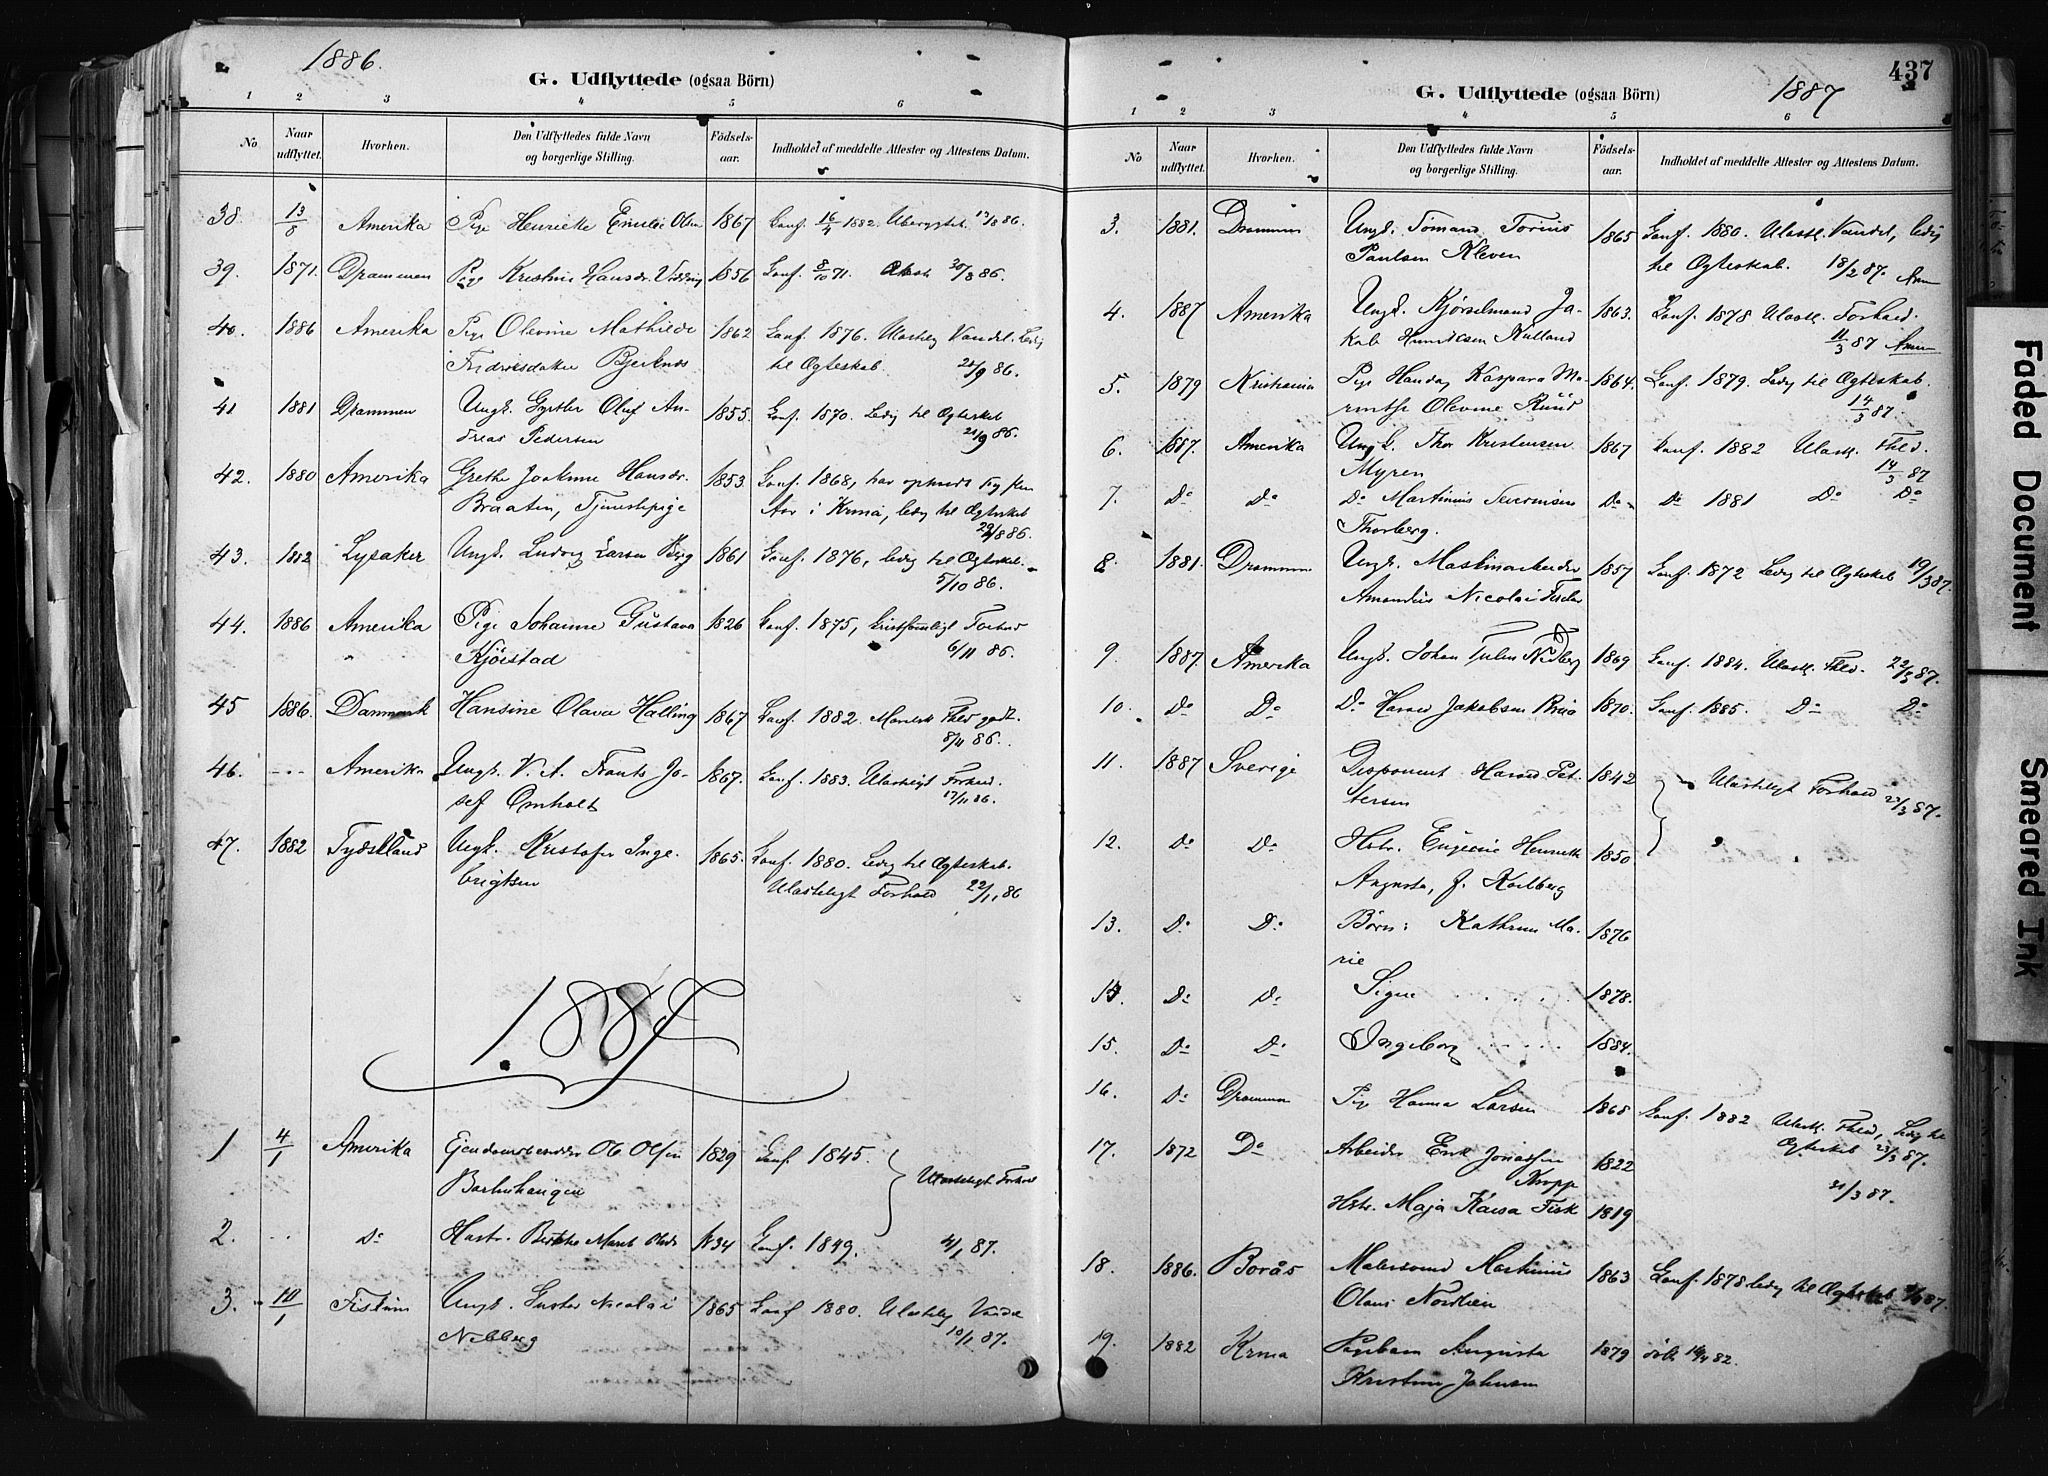 1886.
G. Udflyttede (ogsaa Börn)
1 2 3 4 5 6
No Naar udflyttet. Hvorhen. Den Udflyttedes fulde Navn og borgerlige Stilling. Födsels-aar. Indholdet af meddelte Attester og Attestens Datum.
38. 13/8 Amerika Pige Henriette Emilie Olsen 1867 Conf. 16/4 1882. 17/8 86.
39. 1871. Drammen Pige Kristine Hansdr. 1856 Conf. 8/10 71. 30/8 86.
40. 1886 Amerika Pige Olevine Mathilde 1862 Conf. 1876. Ulastelig Vandel. Ledig
Fridriksdatter Bjerknes til Ægteskab. 21/9 86.
41 1881 Drammen Ungk. Gjørtler Oluf An- 1855. Conf. 1870. Ledig til Ægteskab
dreas Pedersen 21/9 86.
42. 1880 Amerika Grethe Joakime Hansdr. 1853. Conf. 1868, har opholdt sig
Braaten, Tjenestepige Aar i Krnia, ledig til Ægteskab
29/8 86.
43. 1882 Lysaker Ungk. Ludvig Larsen Berg 1861 Conf. 1876, ledig til Ægteskab.
5/10 86.
44. 1886 Amerika Pige Johanne Gustava 1826 Conf. 1875, kristeligt Forhold
Kjörstad 6/11 86.
45 1886. Danmark Hansine Olava Halling 1867 Conf. 1882. Fhld godt.
8/11 86.
46. --- Amerika Ungk. V. A. Frants Jo- 1867. Conf. 1883. Ulasteligt Forhold.
sef Omholt 17/11 86.
47. 1882 Tydskland Ungk. Kristofer Inge- 1865. Conf. 1880. Ledig til Ægteskab.
brigtsen Ulasteligt Forhold 22/11 86
1887
1 4/1 Amerika Ole Olsen 1829 Conf. 1845.
Ulasteligt Forhold
2. .. Do Hustr. Berthe Marit Olsdr 1834 Conf. 1849. 4/1 87.
3. 10/1 Fiskum Ungk. Gustav Nicolai 1865 Conf 1880. Ulastelig Vandel
Nebberg 10/1 87.
437
G. Udflyttede (ogsaa Börn) 1887
1 2 3 4 5 6
No Naar udflyttet. Hvorhen. Den Udflyttedes fulde Navn og borgerlige Stilling. Födsels-aar. Indholdet af meddelte Attester og Attestens Datum.
3. 1881. Drammen Ungk. Sømand 1865 Conf. 1880. Ulastl. Vandel, ledig
Paulsen Kleven til Ægteskab. 18/2 87.
4. 1887 Amerika Ungk. Kjørselmand Ja- 1863. Conf. 1878 Ulastl. Forhold.
kob 11/3 87
5. 1879 Kristiania Pige Kaspara Ma- 1864. Conf. 1879. Ledig til Ægteskab.
Olevine Ruud 14/3 87.
6. 1887. Amerika Ungk. Thor Kristensen 1867 Conf. 1882 Ulastl. Fhld.
Myren 14/3 87
7. Do Do Do Martinius Severinsen Do Do 1881 Do Do
Thorberg.
8. 1881. Drammen Ungk. Maskinarbeider 1857 Conf. 1872 Ledig til Ægteskab 19/3 87.
Amandus Nicolai
9. 1887. Amerika Ungk. Johan 1869 Conf. 1884. Ulastl. Fhld. 22/3 87.
10. Do Do Do Harald Jakobsen 1870. Conf. 1885. Do Do
11. 1887 Sverige Disponent Harald Pet- 1842 Ulasteligt Forhold 23/3 87.
tersen
12. Do Do Hstr. Eugenie Henriette 1850
Augusta, f. Kolberg
13. Do Do Børn: Kathrine Ma- 1876
rie
14. Do Do Signe .... 1878.
15. Do Do Ingeborg .... 1884.
16. Do Drammen Pige Hanna Larsen 1865 Conf. 1882 Ulastl. Fhld, Ledig til
Ægteskab 23/3 87.
17. 1872 Do Arbeider Erik Jonassen 1822
Kropp 31/3 87.
Hstr. Maja Kaisa Fisk 1819
18. 1886. Borås Malersvend Martinius 1863 Conf. 1878 ledig til Ægteskab 87.
Olaus Nordlien
19. 1882 Krnia Pigebarn Augusta 1879 82.
Kristine Johnsen
Faded Document
Smeared Ink